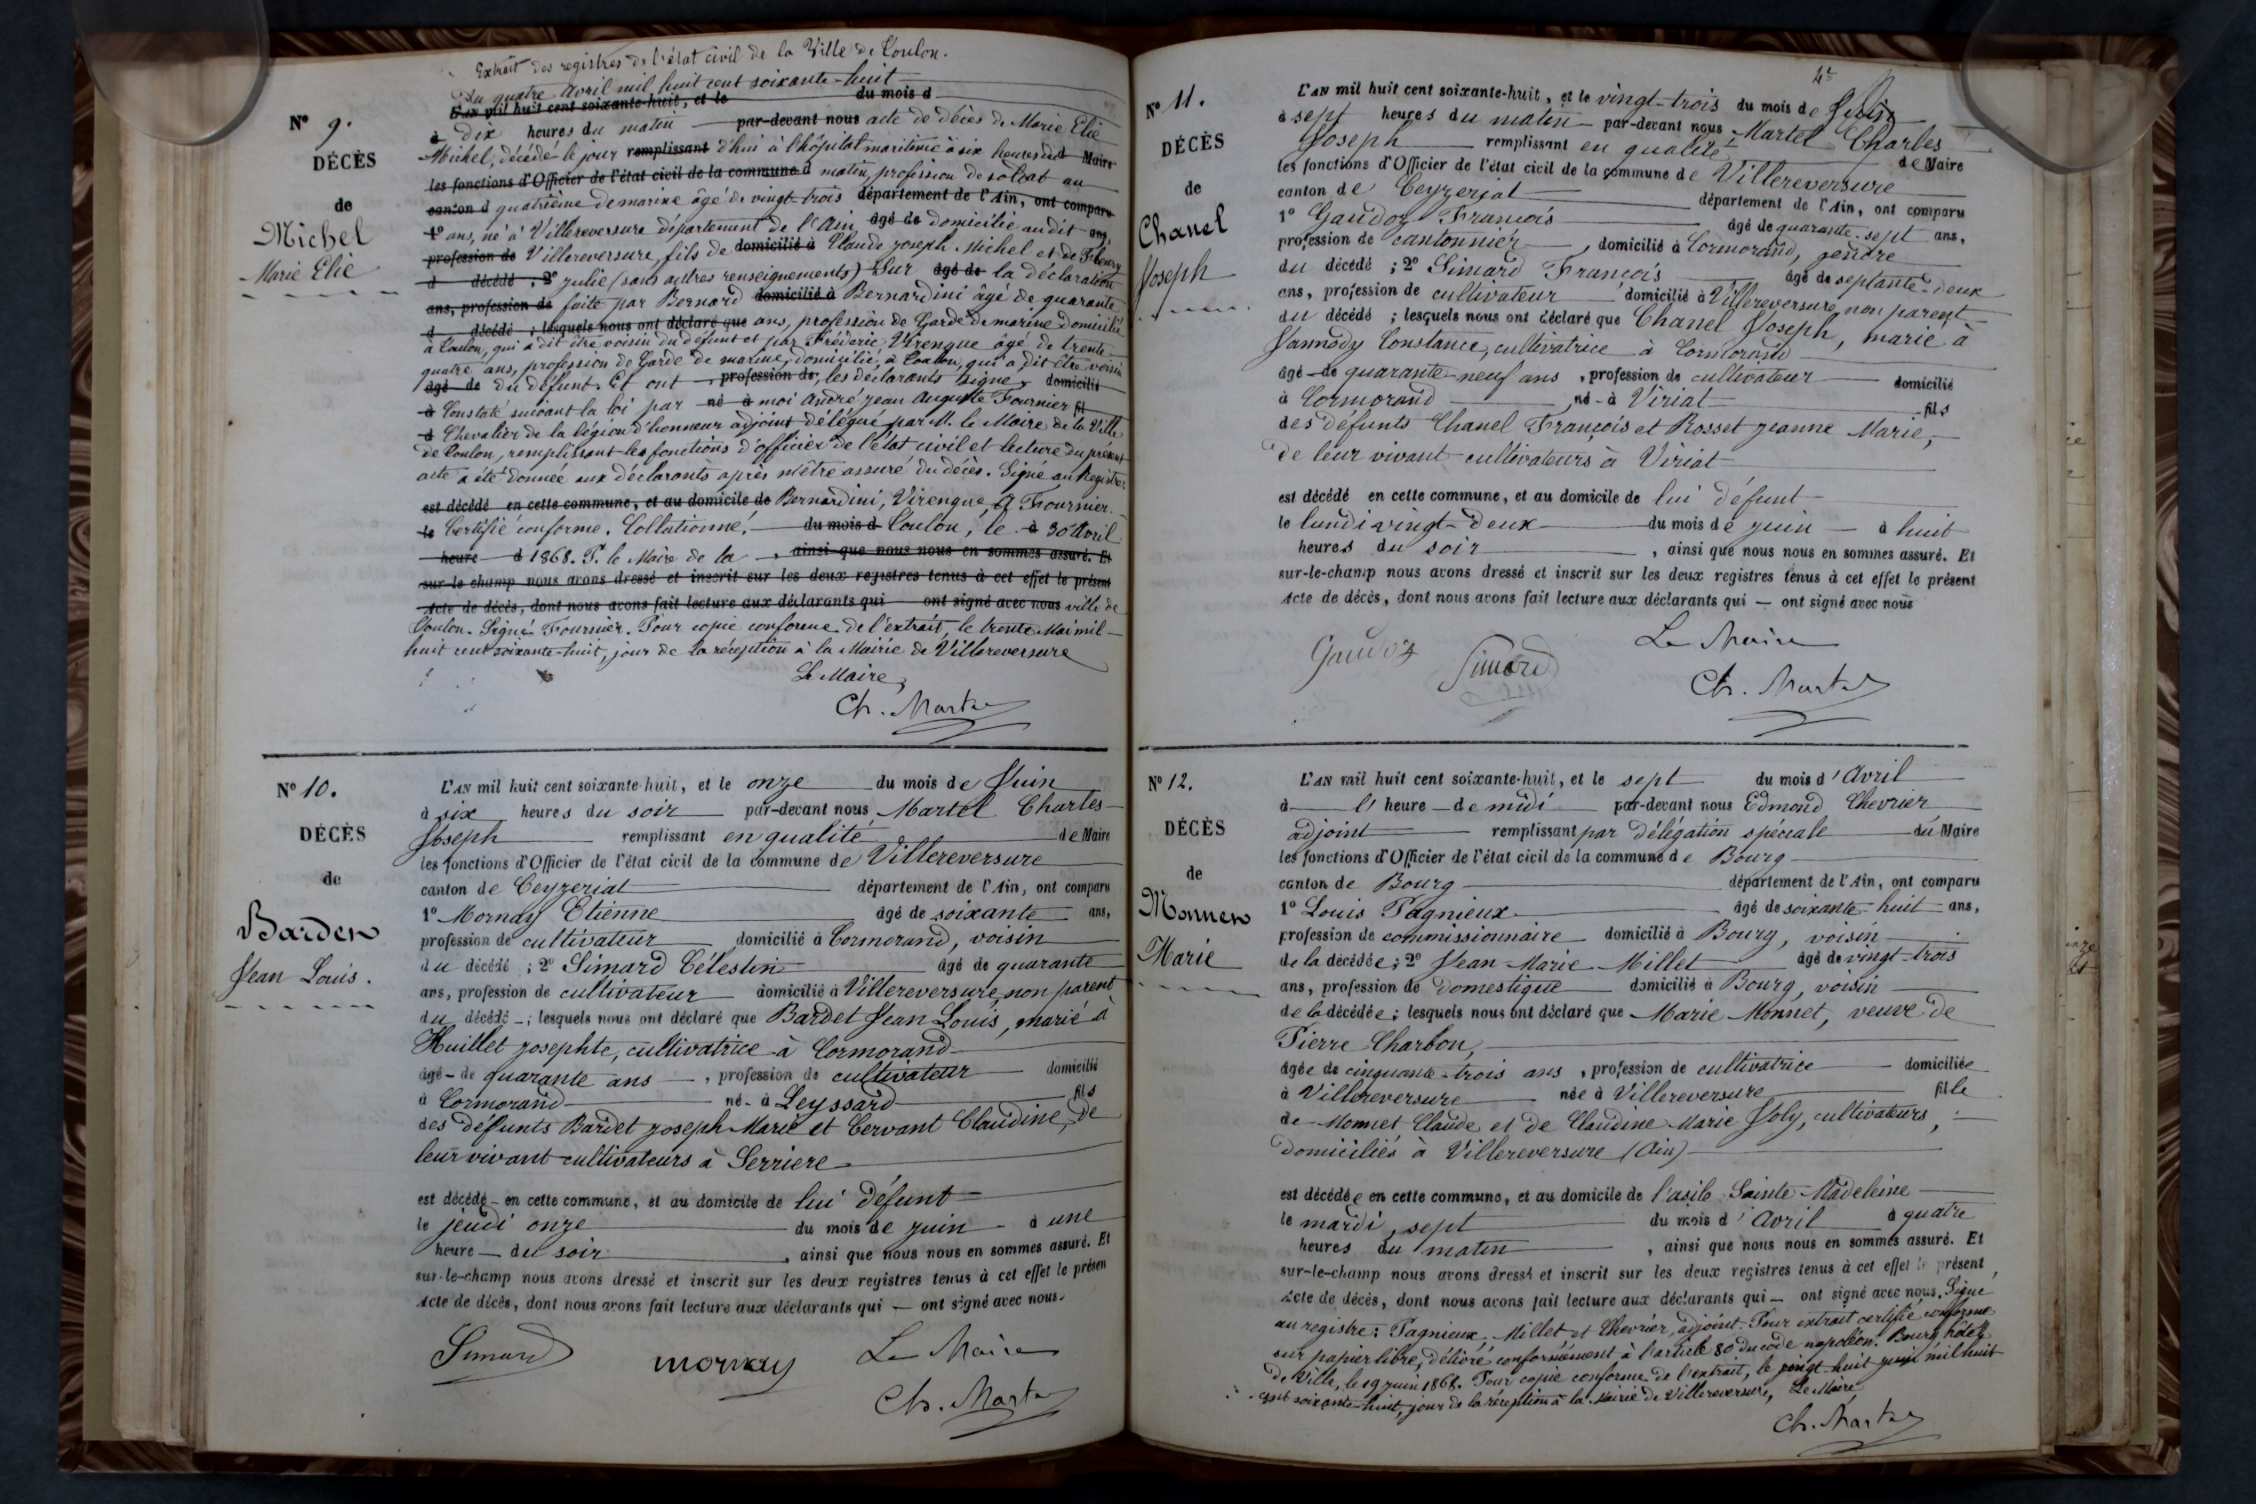 Extrait des registres de l'état civil de la Ville de Toulon.
Du quatre Avril mil huit cent soixante-huit
L'an mil huit cent soixante-huit, et le du mois d
à dix heures du matin par-devant nous acte de décès de Marie Elie
Michel, décédé le jour remplissant d'hui à l'hôpital maritime à six heures du Maire
les fonctions d'Officier de l'état civil de la commune d matin, profession de soldat au
canton d quatrième de marine âgé de vingt-trois département de l'Ain, ont comparu
1º ans, né à Villereversure département de l'Ain âgé de domicilié audit ans,
profession de Villereversure, fils de domicilié à Claude Joseph Michel et de Fleury
d décédé ; 2º Julie (sans autres renseignements) Sur âgé de la déclaration
ans, profession de faite par Bernard domicilié à Bernardini âgé de quarante
d décédé ; lesquels nous ont déclaré que ans, profession de Garde de marine domicilié
à Toulon, qui a dit être voisin du défunt et par Frédéric Virenque âgé de trente
quatre ans, profession de Garde de marine, domicilié à Toulon, qui a dit être voisin
âgé de du défunt. Et ont profession de, les déclarants signé, domicilié
à Constaté suivant la loi par né à moi André Jean Auguste Fournier fil
d Chevalier de la légion d'honneur adjoint délégué par M. le Maire de la Ville
de Toulon, remplissant les fonctions d'officier de l'état civil et lecture du présent
acte a été donnée aux déclarants après m'être assuré du décès. Signé au Registre
est décédé en cette commune, et au domicile de Bernardini, Virenque, A Fournier.
le Certifié conforme. Collationné. du mois d Toulon, le à 30 Avril
heure d 1868. P. le Maire de la , ainsi que nous nous en sommes assuré. Et
sur-le-champ nous avons dressé et inscrit sur les deux registres tenus à cet effet le présent
Acte de décès, dont nous avons fait lecture aux déclarants qui ont signé avec nous ville de
Toulon. Signé Fournier. Pour copie conforme de l'extrait, le trente Mai mil
huit cent soixante-huit, jour de la réception à la Mairie de Villereversure
Le Maire,
Ch. Martel
Nº 9.
DÉCÈS
de
Michel
Marie Elie
Nº 10.
DÉCÈS
de
Bardet
Jean Louis.
L'AN mil huit cent soixante-huit, et le onze du mois de Juin
à six heures du soir par-devant nous Martel Charles
Joseph remplissant en qualité de Maire
les fonctions d'Officier de l'état civil de la commune de Villereversure
canton de Ceyzeriat département de l'Ain, ont comparu
1º Mornay Etienne âgé de soixante ans,
profession de cultivateur domicilié à Cormorand, voisin
du décédé ; 2º Simard Célestin âgé de quarante
ans, profession de cultivateur domicilié à Villereversure, non parent
du décédé ; lesquels nous ont déclaré que Bardet Jean Louis, marié à
Huillet Josephte, cultivatrice à Cormorand
âgé de quarante ans , profession de cultivateur domicilié
à Cormorand né à Leyssard fils
des défunts Bardet Joseph Marie et Cervant Claudine, de
leur vivant cultivateurs à Serriere
est décédé en cette commune, et au domicile de lui défunt
le jeudi onze du mois de juin à une
heure du soir , ainsi que nous nous en sommes assuré. Et
sur-le-champ nous avons dressé et inscrit sur les deux registres tenus à cet effet le présen
Acte de décès, dont nous avons fait lecture aux déclarants qui ont signé avec nous.
Simard mornay Le Maire
Ch. Martel
Nº 11.
DÉCÈS
de
Chanel
Joseph
L'AN mil huit cent soixante-huit, et le vingt-trois du mois de Juin
à sept heures du matin par-devant nous Martel Charles
Joseph remplissant en qualité de Maire
les fonctions d'Officier de l'état civil de la commune de Villereversure
canton de Ceyzeriat département de l'Ain, ont comparu
1º Gaudoz François âgé de quarante-sept ans,
profession de cantonnier , domicilié à Cormorand, gendre
du décédé ; 2º Simard François âgé de septante-deux
ans, profession de cultivateur domicilié à Villereversure, non parent
du décédé ; lesquels nous ont déclaré que Chanel Joseph, marié à
Constance, cultivatrice à Cormorand
âgé de quarante-neuf ans , profession de cultivateur domicilié
à Cormorand né à Viriat fils
des défunts Chanel François et Rosset Jeanne Marie,
de leur vivant cultivateurs à Viriat
est décédé en cette commune, et au domicile de lui défunt
le lundi vingt-deux du mois de juin à huit
heures du soir , ainsi que nous nous en sommes assuré. Et
sur-le-champ nous avons dressé et inscrit sur les deux registres tenus à cet effet le présent
Acte de décès, dont nous avons fait lecture aux déclarants qui ont signé avec nous
Gaudoz Simard Le Maire
Ch. Martel
Nº 12.
DÉCÈS
de
Monnet
Marie
L'AN mil huit cent soixante-huit, et le sept du mois d'Avril
à l'heure de midi par-devant nous Edmond Chevrier
adjoint remplissant par délégation spéciale du Maire
les fonctions d'Officier de l'état civil de la commune de Bourg
canton de Bourg département de l'Ain, ont comparu
1º Louis Pagnieux âgé de soixante-huit ans,
profession de commissionnaire domicilié à Bourg, voisin
de la décédée ; 2º Jean-Marie Millet âgé de vingt-trois
ans, profession de domestique domicilié à Bourg, voisin
de la décédée ; lesquels nous ont déclaré que Marie Monnet, veuve de
Pierre Charbon,
âgée de cinquante-trois ans , profession de cultivatrice domiciliée
à Villereversure née à Villereversure fille
de Monnet Claude et de Claudine Marie Joly, cultivateurs,
domiciliés à Villereversure (Ain)
est décédée en cette commune, et au domicile de l'asile Sainte-Madeleine
le mardi, sept du mois d'Avril à quatre
heures du matin , ainsi que nous nous en sommes assuré. Et
sur-le-champ nous avons dressé et inscrit sur les deux registres tenus à cet effet le présent
Acte de décès, dont nous avons fait lecture aux déclarants qui ont signé avec nous. Signé
au registre : Pagnieux, Millet et Chevrier, adjoint. Pour extrait certifié conforme
sur papier libre, délivré conformément à l'article 80 du code napoléon. Bourg, hôtel
de Ville, le 19 juin 1868. Pour copie conforme de l'extrait, le vingt-huit juin mil huit
cent soixante-huit, jour de la réception à la Mairie de Villereversure, Le Maire
Ch. Martel